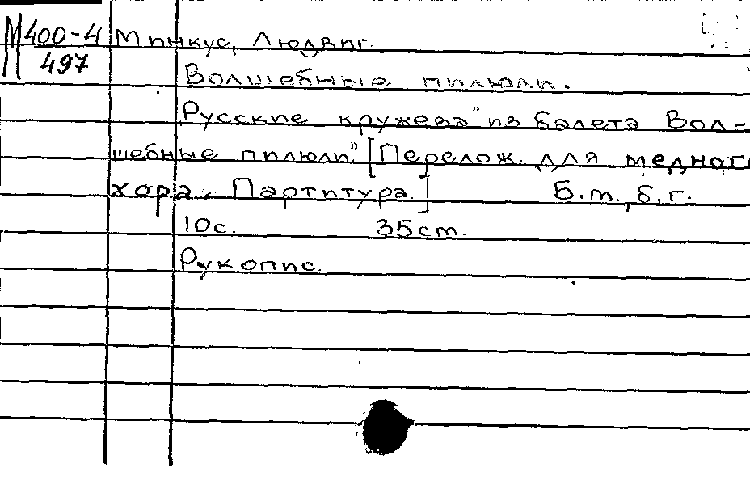 М400-4 Минкус, Людвиг.
497
Волшебные пилюли.
Русские кружева" из балета Вол-
шебные пилюли". [Перелож. для медного
хора. Партитура.] Б.м., б.г.
10с. 35cm.
Рукопис.